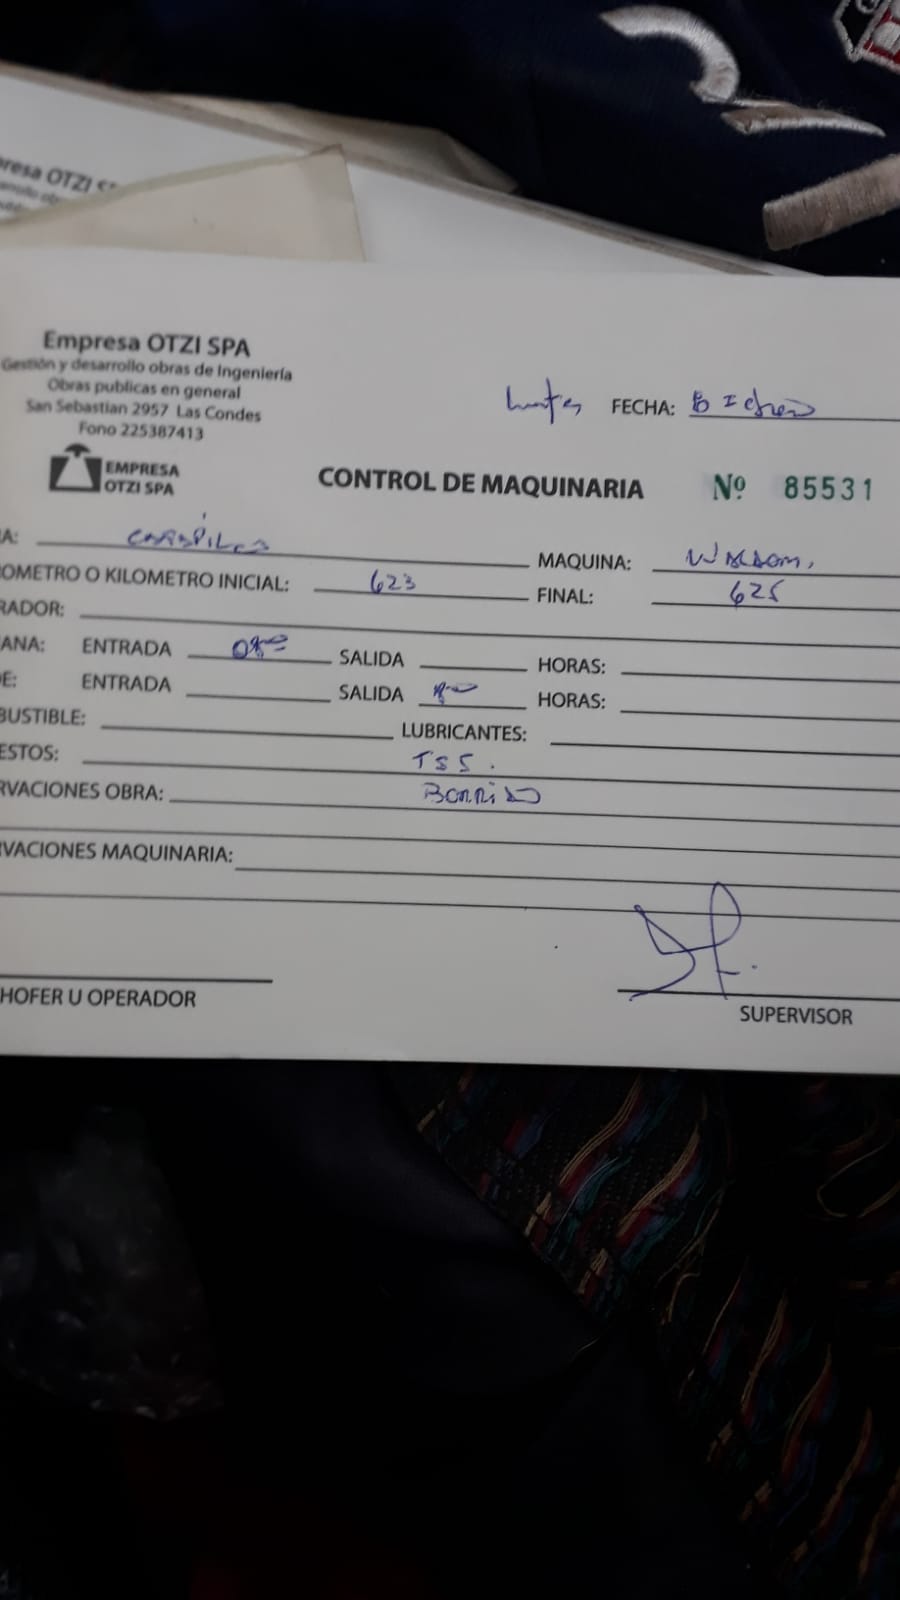 resa OTZI
Empresa OTZI SPA
Gestión y desarrollo obras de Ingeniería
Obras publicas en general
San Sebastian 2957 Las Condes
Fono 225387413
EMPRESA
OTZI SPA
FECHA:
CONTROL DE MAQUINARIA Nº 85531
A: MAQUINA:
OMETRO O KILOMETRO INICIAL: 623 FINAL: 625
RADOR:
ANA: ENTRADA SALIDA HORAS:
E: ENTRADA SALIDA HORAS:
BUSTIBLE: LUBRICANTES:
ESTOS: TSS.
RVACIONES OBRA:
RVACIONES MAQUINARIA:
HOFER U OPERADOR
SUPERVISOR